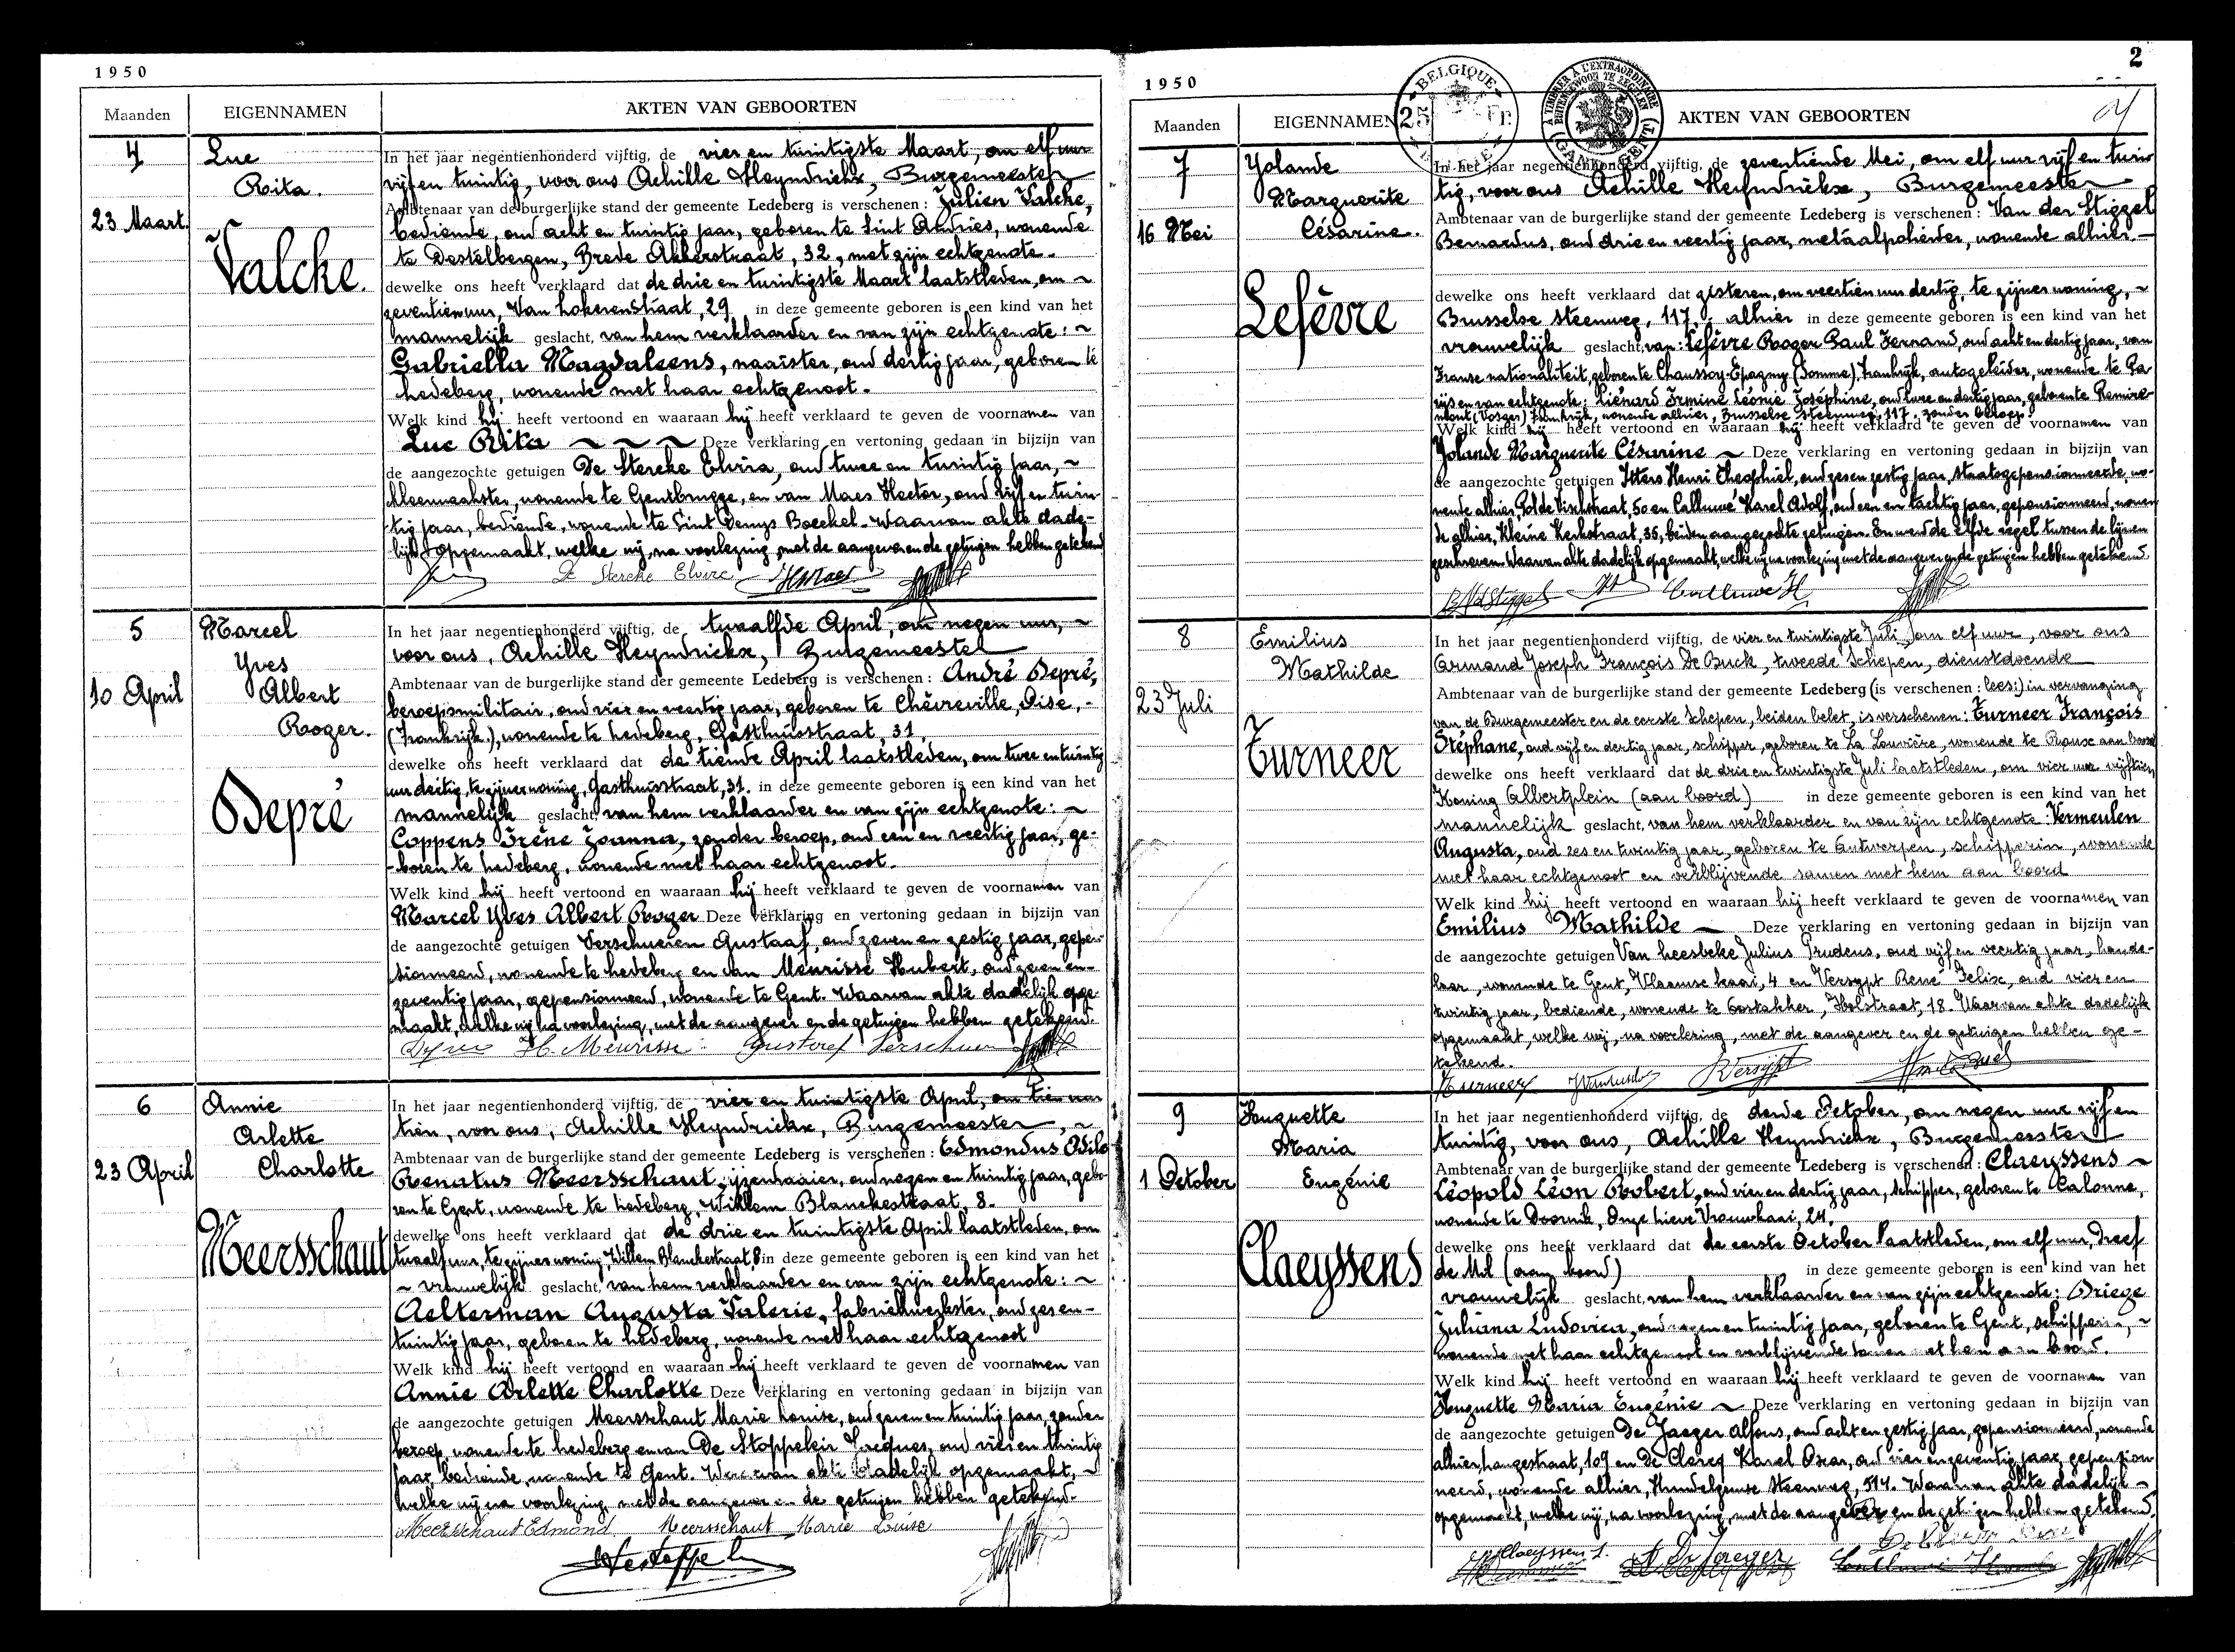 1950
Maanden EIGENNAMEN AKTEN VAN GEBOORTEN
4
23 Maart.
Luc
Rita.
Valcke.
In het jaar negentienhonderd vijftig, de vier en twintigste Maart, om elf uur
vijf en twintig, voor ons Achille Heyndrickx, Burgemeester
Ambtenaar van de burgerlijke stand der gemeente Ledeberg is verschenen: Julien Valcke,
bediende, oud acht en twintig jaar, geboren te Sint Andries, wonende
te Destelbergen, Brede Akkerstraat, 32, met zijn echtgenote.
dewelke ons heeft verklaard dat de drie en twintigste Maart laatstleden, om ~
zeventien uur, Van Lokerenstraat, 29 in deze gemeente geboren is een kind van het
mannelijk geslacht, van hem verklaarder en van zijn echtgenote: ~
Gabriella Magdaleens, naaister, oud dertig jaar, geboren te
Ledeberg, wonende met haar echtgenoot.
Welk kind hij heeft vertoond en waaraan hij heeft verklaard te geven de voornamen van
Luc Rita ~ ~ ~ Deze verklaring en vertoning gedaan in bijzijn van
de aangezochte getuigen De Stercke Elvira, oud twee en twintig jaar, ~
kleermaakster, wonende te Gentbrugge, en van Maes Hector, oud vijf en twin-
tig jaar, bediende, wonende te Sint Denijs Boeckel. Waarvan akte dade-
lijk opgemaakt, welke wij, na voorlezing, met de aangever en de getuigen hebben getekend
De Stercke Elvire HMaes
5
10 April
Marcel
Yves
Albert
Roger.
Depré
In het jaar negentienhonderd vijftig, de twaalfde April, om negen uur, ~
voor ons, Achille Heyndrickx, Burgemeester
Ambtenaar van de burgerlijke stand der gemeente Ledeberg is verschenen: André Depré,
beroepsmilitair, oud vier en veertig jaar, geboren te Chèvreville, Oise, -
(Frankrijk), wonende te Ledeberg, Gasthuisstraat, 31,
dewelke ons heeft verklaard dat de tiende April laatstleden, om twee en twintig
uur dertig, te zijner woning, Gasthuisstraat, 31. in deze gemeente geboren is een kind van het
mannelijk geslacht, van hem verklaarder en van zijn echtgenote: ~
Coppens Irène Joanna, zonder beroep, oud een en veertig jaar, ge-
-boren te Ledeberg, wonende met haar echtgenoot.
Welk kind hij heeft vertoond en waaraan hij heeft verklaard te geven de voornamen van
Marcel Yves Albert Roger Deze verklaring en vertoning gedaan in bijzijn van
de aangezochte getuigen Verschueren Gustaaf, oud zeven en zestig jaar, gepen-
sionneerd, wonende te Ledeberg en van Meurisse Hubert, oud zeven en-
zeventig jaar, gepensionneerd, wonende te Gent. Waarvan akte dadelijk opge-
maakt, welke wij na voorlezing, met de aangever en de getuigen hebben getekend.
H. Meurisse Gustaaf Verschueren
6
23 April
Annie
Arlette
Charlotte
Meersschaut
In het jaar negentienhonderd vijftig, de vier en twintigste April, om tien uur
tien, voor ons, Achille Heyndrickx, Burgemeester, ~
Ambtenaar van de burgerlijke stand der gemeente Ledeberg is verschenen: Edmondus Odilo
Renatus Meersschaut, ijzerdraaier, oud negen en twintig jaar, gebo-
ren te Gent, wonende te Ledeberg, Willem Blanckestraat, 8.
dewelke ons heeft verklaard dat de drie en twintigste April laatstleden, om
twaalf uur, te zijner woning, Willem Blanckestraat, 8 in deze gemeente geboren is een kind van het
~ vrouwelijk geslacht, van hem verklaarder en van zijn echtgenote: ~
Aelterman Augusta Valerie, fabriekwerkster, oud zes en-
twintig jaar, geboren te Ledeberg, wonende met haar echtgenoot
Welk kind hij heeft vertoond en waaraan hij heeft verklaard te geven de voornamen van
Annie Arlette Charlotte Deze verklaring en vertoning gedaan in bijzijn van
de aangezochte getuigen Meersschaut Marie Louise, oud zeven en twintig jaar, zonder
beroep, wonende te Ledeberg en van De Stoppeleir Jacques, oud vier en twintig
jaar, bediende, wonende te Gent. Waarvan akte dadelijk opgemaakt, ~
welke wij na voorlezing met de aangever en de getuigen hebben getekend.
Meersschaut Edmond Meersschaut Marie Louise
2
1950
BELGIQUE
25 Fr.
A TIMBRER A L'EXTRAORDINAIRE
BUITENGEWOON TE ZEGELEN
(GAND) (GENT)
Maanden EIGENNAMEN AKTEN VAN GEBOORTEN
7
16 Mei
Yolande
Marguerite
Césarine.
Lefèvre
In het jaar negentienhonderd vijftig, de zeventiende Mei, om elf uur vijf en twin-
tig, voor ons Achille Heyndrickx, Burgemeester
Ambtenaar van de burgerlijke stand der gemeente Ledeberg is verschenen: Van der Stiggel
Bernardus, oud drie en veertig jaar, metaalpolierder, wonende alhier -
dewelke ons heeft verklaard dat gisteren, om veertien uur dertig, te zijner woning, ~
Brusselse steenweg, 117, alhier in deze gemeente geboren is een kind van het
vrouwelijk geslacht, van: Lefèvre Roger Paul Fernand, oud acht en dertig jaar, van
Franse nationaliteit, geboren te Chaussoy-Epagny (Somme), Frankrijk, autogeleider, wonende te Pa-
rijs en van echtgenote: Liénard Irmine Léonie Joséphine, oud twee en dertig jaar, geboren te Remire-
mont (Vosges) Frankrijk, wonende alhier, Brusselse steenweg, 117, zonder beroep.
Welk kind hij heeft vertoond en waaraan hij heeft verklaard te geven de voornamen van
Yolande Marguerite Césarine ~ Deze verklaring en vertoning gedaan in bijzijn van
de aangezochte getuigen Itters Henri Theophiel, oud zes en zestig jaar, staatsgepensionneerde, wo-
nende alhier, Polde Vischstraat, 50 en Calluwé Karel Adolf, oud een en tachtig jaar, gepensionneerd, wonen-
de alhier, Kleine Kerkstraat, 35, beiden aangezochte getuigen. En werd de elfde regel tussen de lijnen
geschreven. Waarvan akte dadelijk opgemaakt, welke wij na voorlezing met de aangever en de getuigen hebben getekend.
8
23 Juli
Emilius
Mathilde
Turneer
In het jaar negentienhonderd vijftig, de vier en twintigste Juli, om elf uur, voor ons
Armand Joseph François De Buck, tweede Schepen, dienstdoende
Ambtenaar van de burgerlijke stand der gemeente Ledeberg (is verschenen: lees:) in vervanging
van de Burgemeester en de eerste Schepen, beiden belet, is verschenen: Turneer François
Stéphane, oud vijf en dertig jaar, schipper, geboren te La Louvière, wonende te Ronse aan boord
dewelke ons heeft verklaard dat de drie en twintigste Juli laatstleden, om vier uur vijftien,
Koning Albertplein (aan boord) in deze gemeente geboren is een kind van het
mannelijk geslacht, van hem verklaarder en van zijn echtgenote: Vermeulen
Augusta, oud zes en twintig jaar, geboren te Antwerpen, schipperin, wonende
met haar echtgenoot en verblijvende samen met hem aan boord
Welk kind hij heeft vertoond en waaraan hij heeft verklaard te geven de voornamen van
Emilius Mathilde ~ Deze verklaring en vertoning gedaan in bijzijn van
de aangezochte getuigen Van heesbeke Julius Prudens, oud vijf en veertig jaar, hande-
laar, wonende te Gent, Vlaamse kaai, 4 en Versypt René Felix, oud vier en
twintig jaar, bediende, wonende te Oostakker, Holstraat, 18. Waarvan akte dadelijk
opgemaakt, welke wij, na voorlezing, met de aangever en de getuigen hebben ge-
tekend.
Turneer RVersypt
9
1 October
Huguette
Maria
Eugénie
Claeyssens
In het jaar negentienhonderd vijftig, de derde October, om negen uur vijf en
twintig, voor ons, Achille Heyndrickx, Burgemeester
Ambtenaar van de burgerlijke stand der gemeente Ledeberg is verschenen: Claeyssens ~
Léopold Léon Robert, oud vier en dertig jaar, schipper, geboren te Calonne,
wonende te Doornik, Onze Lieve Vrouwkaai, 24.
dewelke ons heeft verklaard dat de eerste October laatstleden, om elf uur, Dreef
de Mil (aan boord) in deze gemeente geboren is een kind van het
vrouwelijk geslacht, van hem verklaarder en van zijn echtgenote: Driege
Juliana Ludovica, oud negen en twintig jaar, geboren te Gent, schipperin, ~
wonende met haar echtgenoot en verblijvende samen met hem aan boord.
Welk kind hij heeft vertoond en waaraan hij heeft verklaard te geven de voornamen van
Huguette Maria Eugénie ~ Deze verklaring en vertoning gedaan in bijzijn van
de aangezochte getuigen De Jaeger Alfons, oud acht en zestig jaar, gepensionneerd, wonende
alhier, Langestraat, 109 en De Clercq Karel Oscar, oud vier en zeventig jaar, gepension-
neerd, wonende alhier, Hundelgemse Steenweg, 514. Waarvan akte dadelijk ~
opgemaakt, welke wij, na voorlezing, met de aangever en de getuigen hebben getekend.
Claeyssens L. A De Jaeger